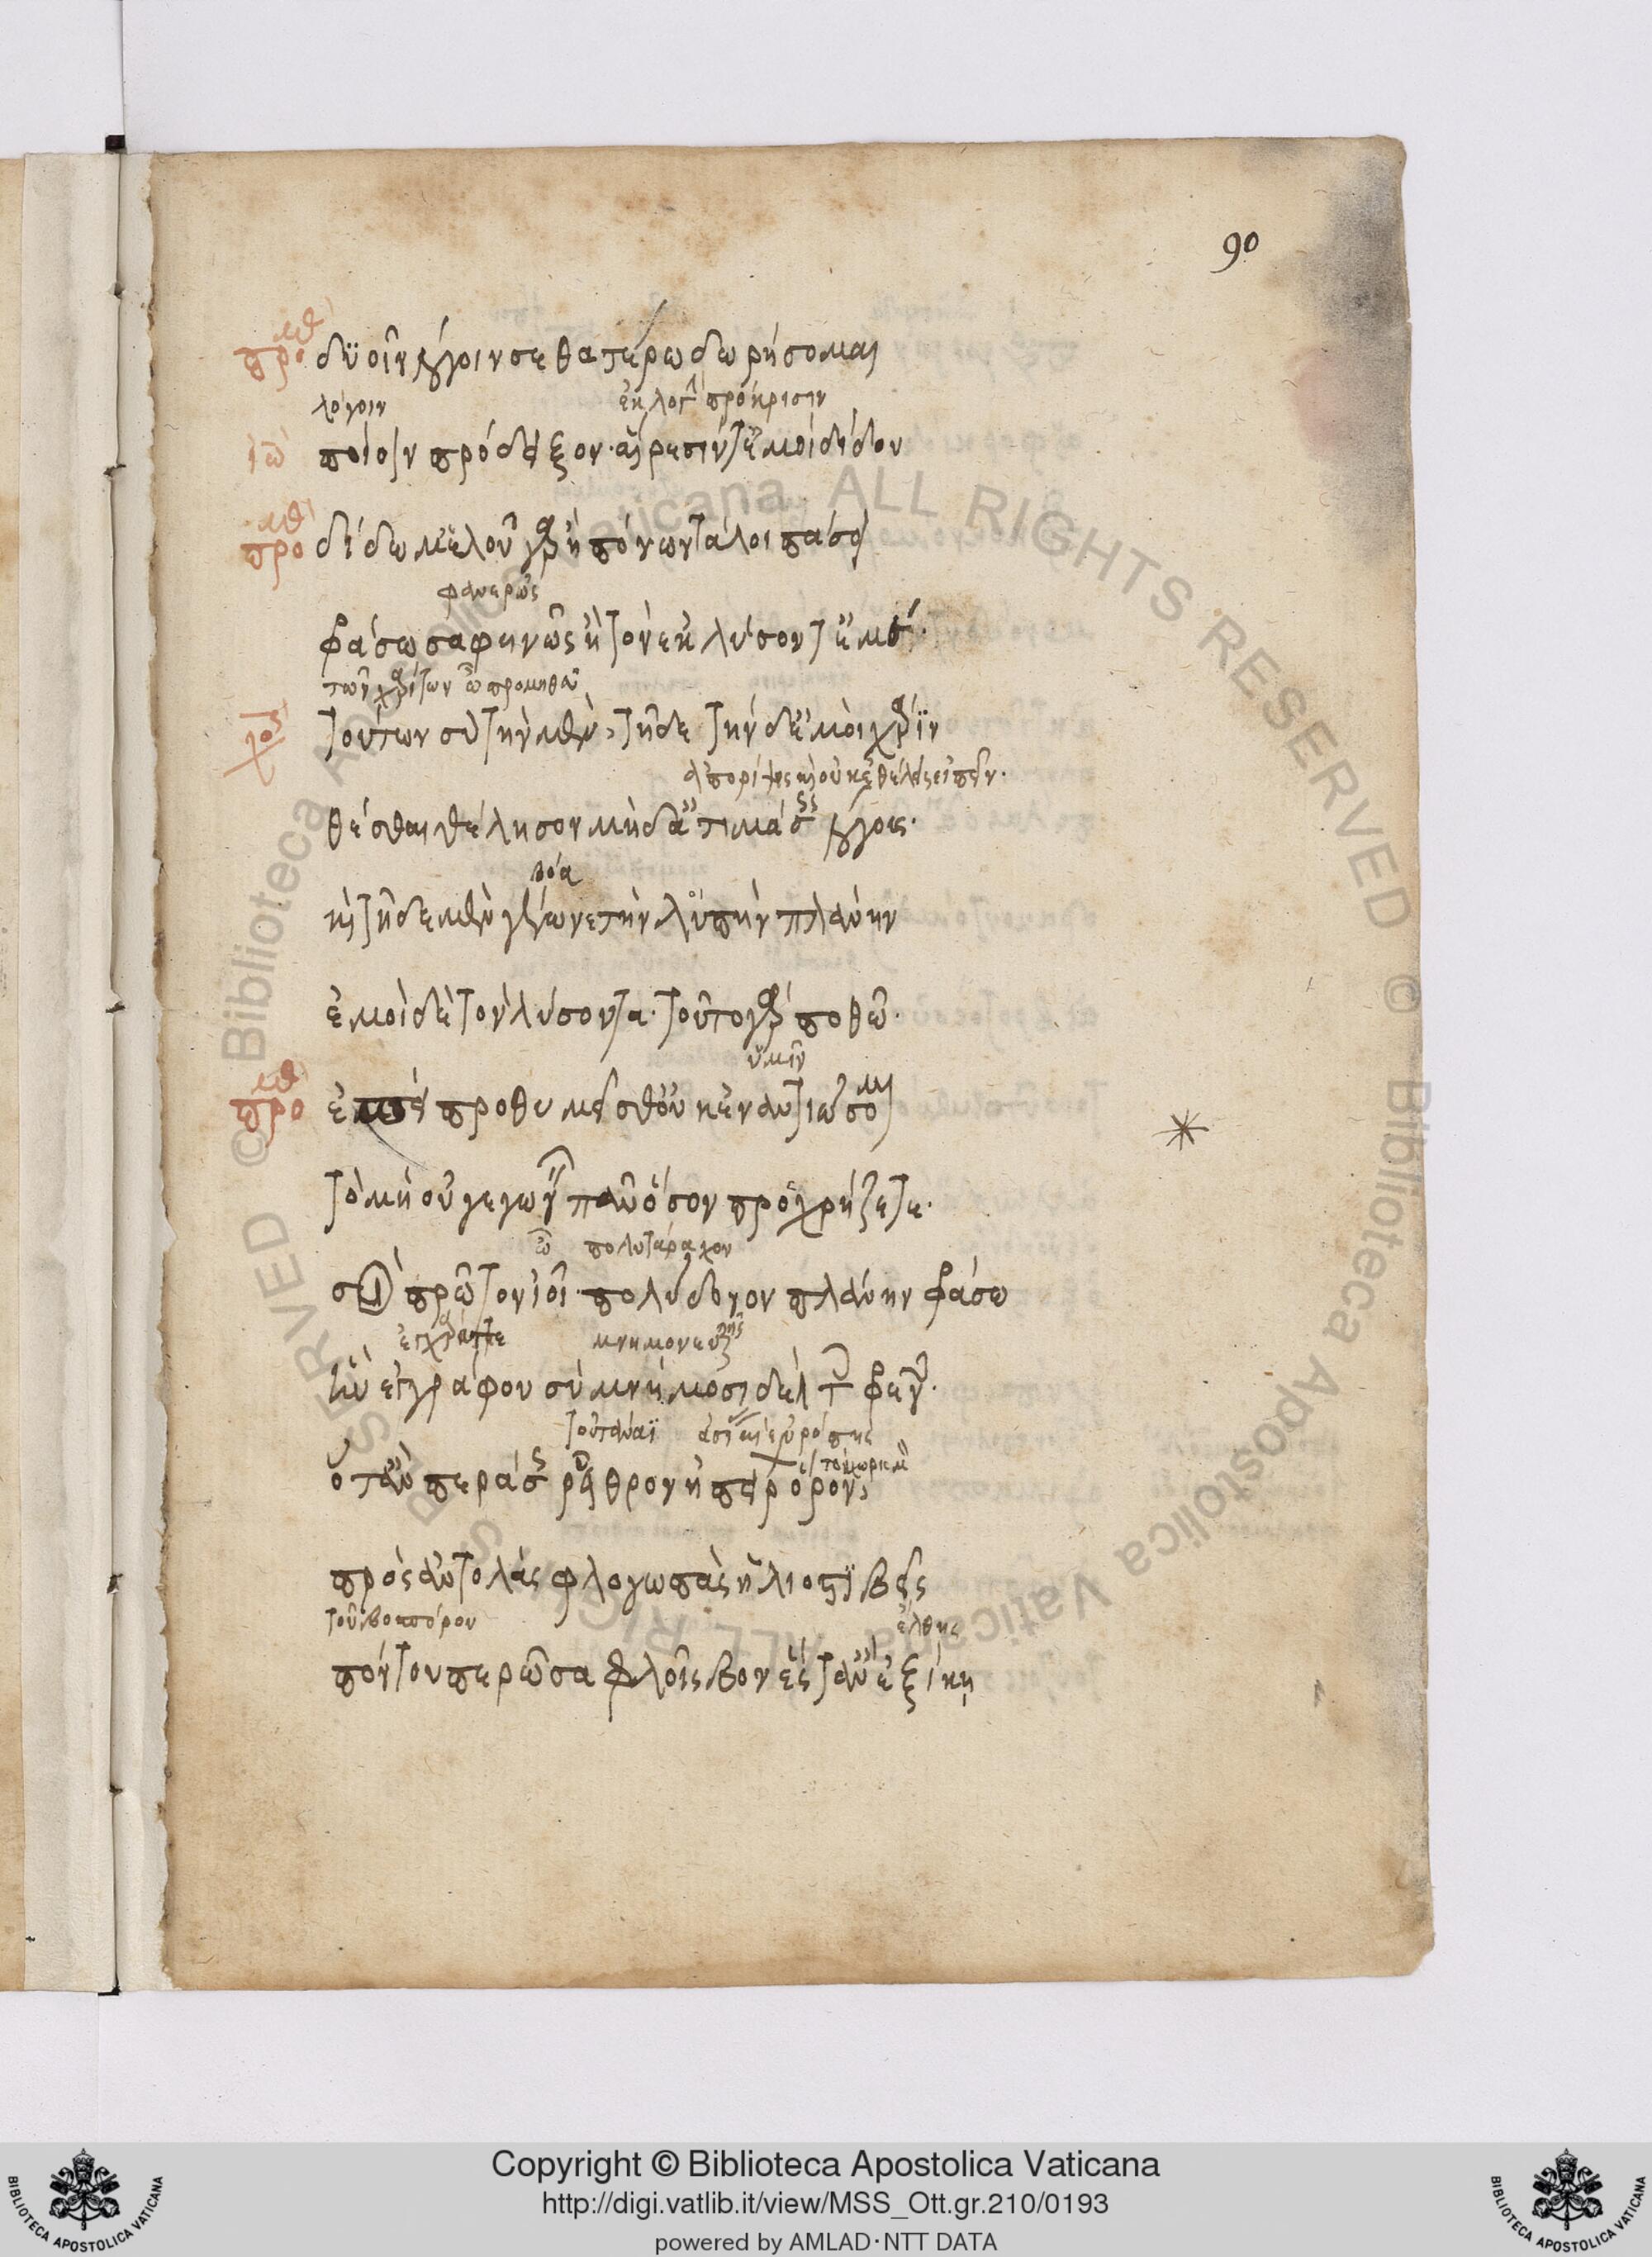 90
προμθ δυοῖν λόγοιν σε θατέρω δωρήσομαι
λόγοιν ἐκλογὴν πρόκρισιν
ἰώ ποίοιν πρόδειξον· αἵρεσίν τ' ἐμοὶ δίδου
προμθ δίδωμ' ἑλοῦ γὰρ ἢ πόνων τὰ λοιπά σοι
φανερῶς
φράσω σαφηνῶς ἢ τὸν ἐκλύσοντ' ἐμέ·
τῶν χαρίτων ὦ προμηθεῦ
χορ τούτων σὺ τὴν μὲν, τῆδε τὴν δ' ἐμοὶ χάριν
θέσθαι θέλησον μὴ δ' ἀτιμάσης λόγους·
βόα
καὶ τῆδε μὲν γέγωνε τὴν λοιπὴν πλάνην
ἐμοὶ δὲ τὸν λύσοντα· τοῦτο γὰρ ποθῶ·
ὑμῖν
προμθ ἐπεὶ προθυμεῖσθ' οὐκ ἐναντιώσομαι
τὸ μὴ οὐ γεγωνεῖν πᾶν ὅσον προσχρήζετε·
ὦ πολυτάραχον
σοὶ πρῶτον ἰοῖ· πολύδονον πλάνην φράσω
μνημονευτικαῖς
ἣν ἐγγράφου σὺ μνήμοσι δέλτοις φρενῶν·
τοῦ τανάϊ ἀσίας καὶ εὐρώπης
ὅταν περάσης ῥεῖθρον ἠπείρ ὅρον,
πρὸς ἀντολὰς φλογωπὰς ἡλιοστιβεῖς
τοῦ βοσπόρου ἔλθης
πόντου περῶσα φλοῖσβον ἔς τ' ἂν ἐξίκη
Copyright © Biblioteca Apostolica Vaticana
http://digi.vatlib.it/view/MSS_Ott.gr.210/0193
powered by AMLAD·NTT DATA
BIBLIOTECA APOSTOLICA VATICANA
BIBLIOTECA APOSTOLICA VATICANA
© Biblioteca Apostolica Vaticana ALL RIGHTS RESERVED © Biblioteca Apostolica Vaticana ALL RIGHTS RESERVED